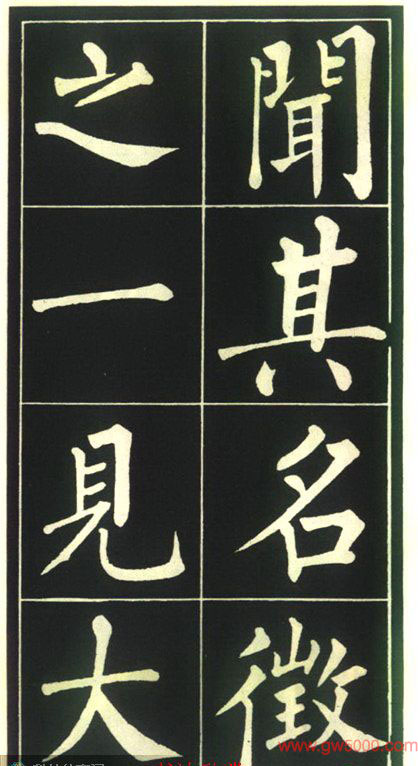 聞其名徵
之一見大
www.gw5000.com